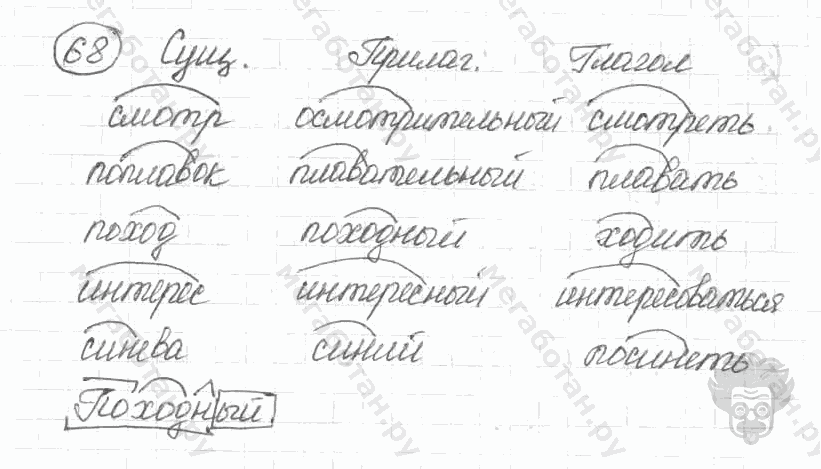 68 Сущ. Прилаг. Глагол
смотр осмотрительный смотреть.
поплавок плавательный плавать
поход походный ходить
интерес интересный интересоваться
синева синий посинеть
Походный
мегаботан.ру